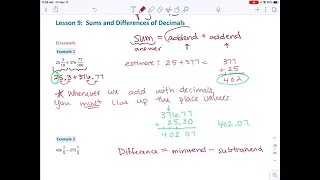 10:08 AM Fri Nov 13
Lesson 9: Sums and Differences of Decimals
Classwork
sum = addend + addend
answer
Example 1
25 3/10 + 376 77/100
estimate: 25 + 377 = 377
+ 25
402
25.3 + 376.77
* Whenever we add with decimals,
you must line up the place values.
376.77
+ 25.30
402 07
402.07
Example 2
Difference = minuend - subtrahend